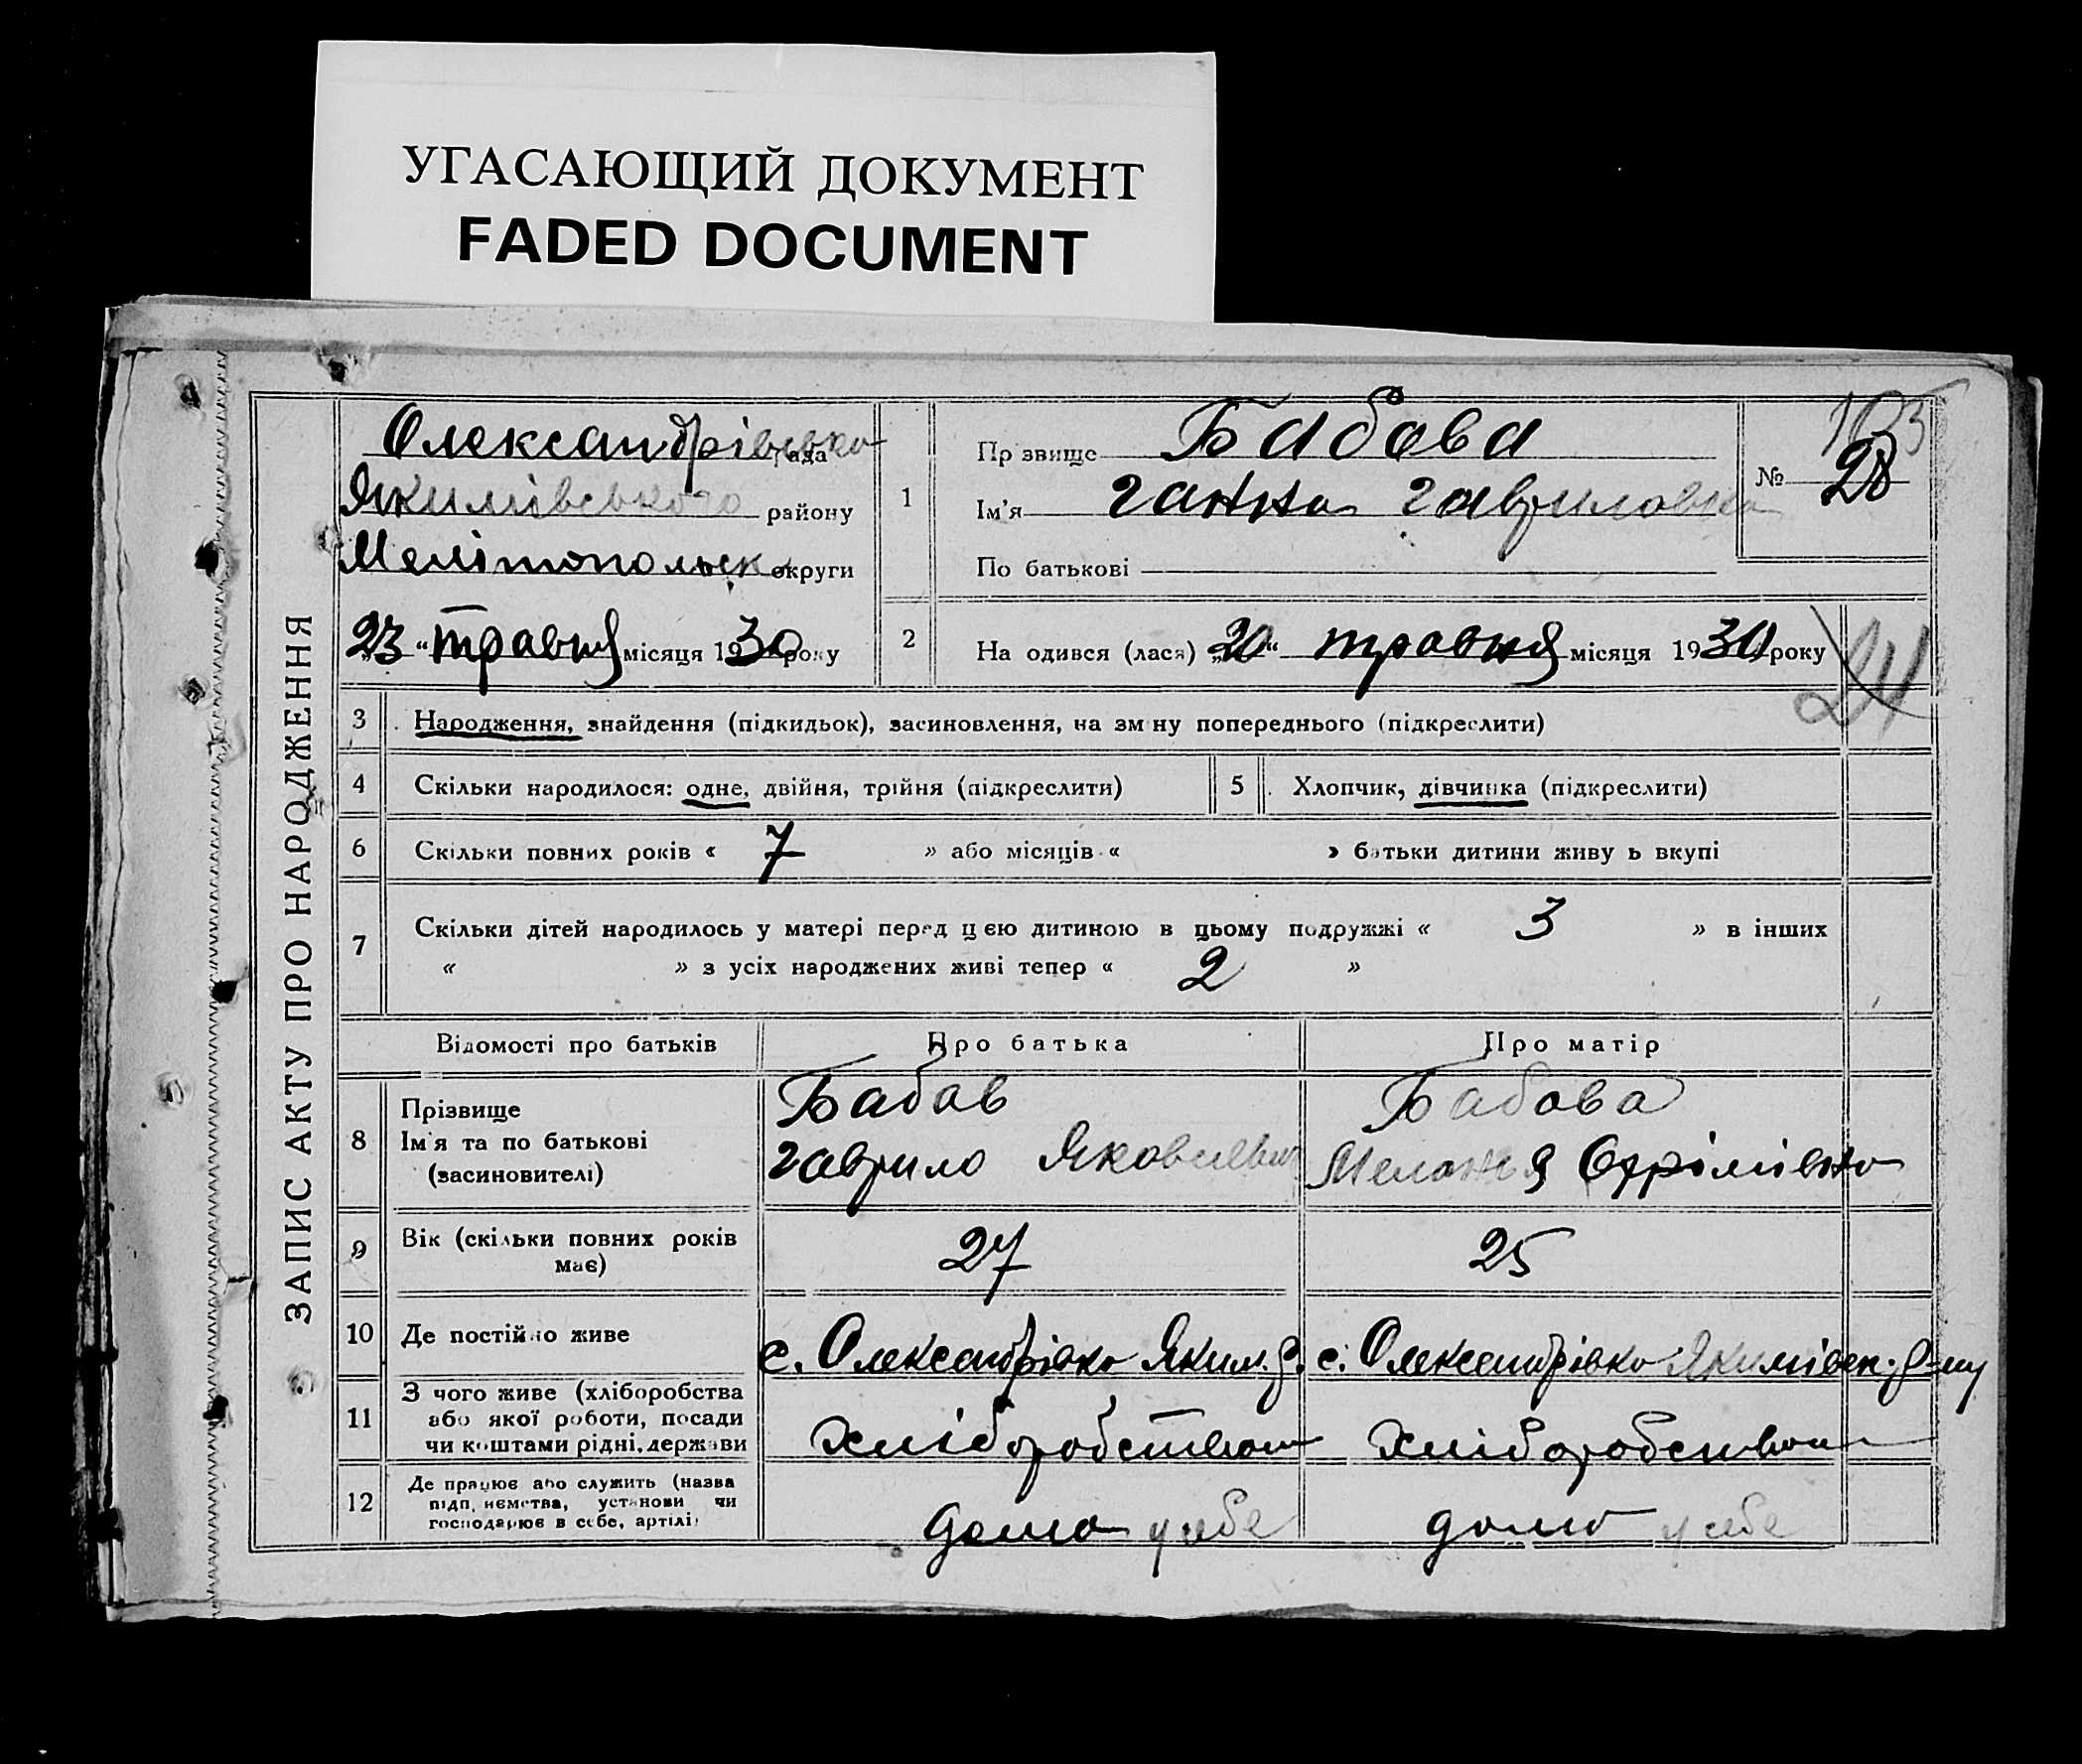 УГАСАЮЩИЙ ДОКУМЕНТ
FADED DOCUMENT
ЗАПИС АКТУ ПРО НАРОДЖЕННЯ
Олександрівська рада
Якимівського району
Мелітопольськ округи
„23“ травня місяця 1930 року
1
Прізвище Бабова
Ім'я Ганна Гавриловна
По батькові
№ 28
2
На одився (лася) „20“ травня місяця 1930 року
24
3 Народження, знайдення (підкидьок), засиновлення, на зміну попереднього (підкреслити)
4 Скільки народилося: одне, двійня, трійня (підкреслити)
5 Хлопчик, дівчинка (підкреслити)
6 Скільки повних років « 7 » або місяців « » батьки дитини живуть вкупі
7 Скільки дітей народилось у матері перед цією дитиною в цьому подружжі « 3 » в інших
« » з усіх народжених живі тепер « 2 »
Відомості про батьків Про батька Про матір
8 Прізвище Бабов Бабова
Ім'я та по батькові Гаврило Якович Меланья Єфрімівна
(засиновителі)
9 Вік (скільки повних років має) 27 25
10 Де постійно живе с. Олександрівка Яким. р. с. Олександрівка Якимівськ. р-ну
11 З чого живе (хліборобства
або якої роботи, посади
чи коштами рідні, держави Хліборобством Хліборобством
12 Де працює або служить (назва
підприємства, установи чи
господарює в себе, артілі) дома у себе дома у себе